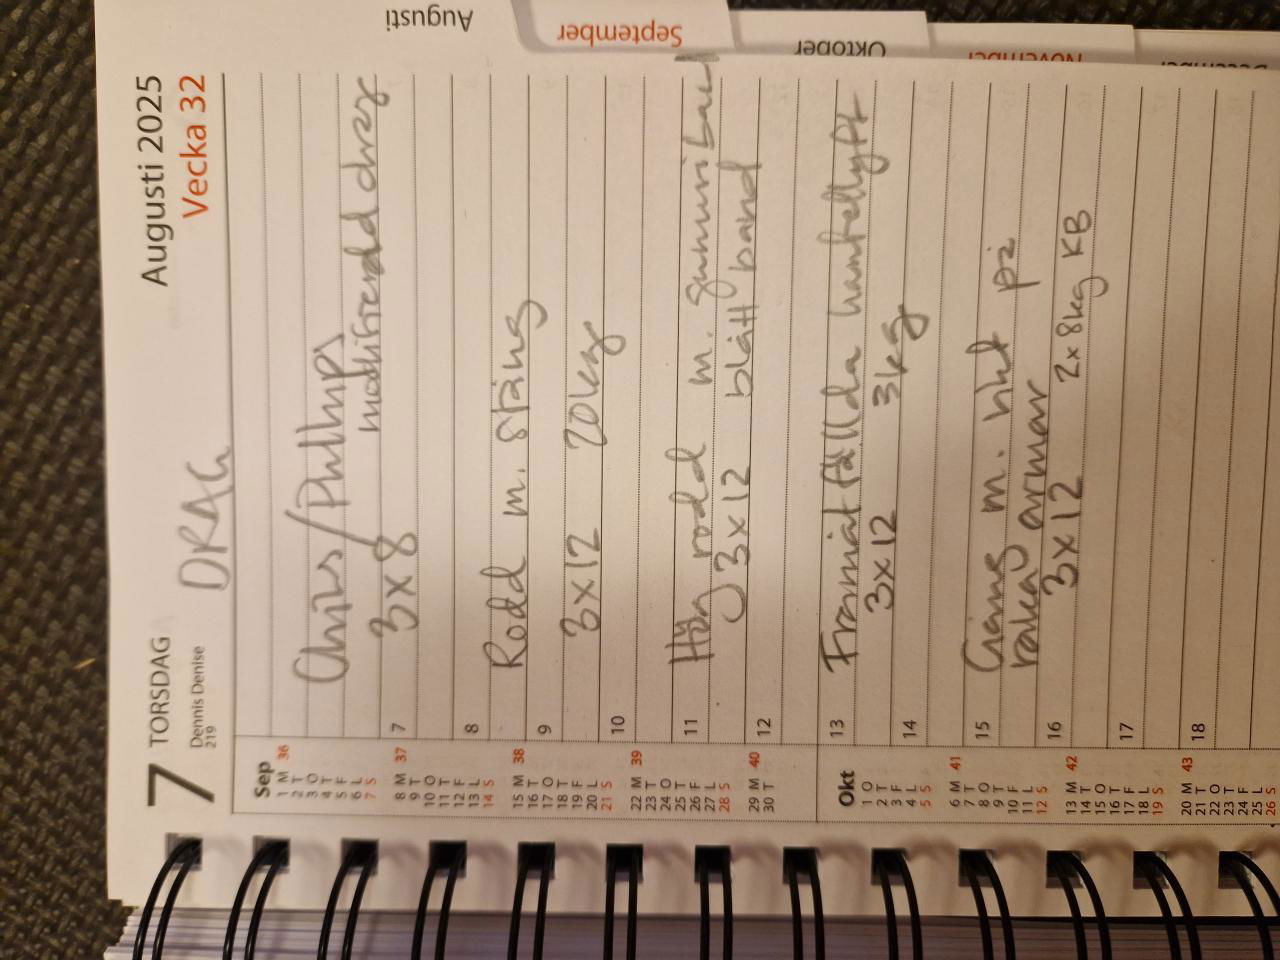 Augusti
September
Oktober
November
December
7 TORSDAG
Dennis Denise
219
Augusti 2025
Vecka 32
DRAG
Chins/Pullups
3x8 modifierad drag
Rodd m. stång
3x12 20kg
Hög rodd m. gummiband
3x12 blått band
Framåtfällda hantellyft
3x12 3kg
Gång m. kb på
raka armar
3x12 2x8kg KB
7
8
9
10
11
12
13
14
15
16
17
18
Sep
1 M 36
2 T
3 O
4 T
5 F
6 L
7 S
8 M 37
9 T
10 O
11 T
12 F
13 L
14 S
15 M 38
16 T
17 O
18 T
19 F
20 L
21 S
22 M 39
23 T
24 O
25 T
26 F
27 L
28 S
29 M 40
30 T
Okt
1 O
2 T
3 F
4 L
5 S
6 M 41
7 T
8 O
9 T
10 F
11 L
12 S
13 M 42
14 T
15 O
16 T
17 F
18 L
19 S
20 M 43
21 T
22 O
23 T
24 F
25 L
26 S